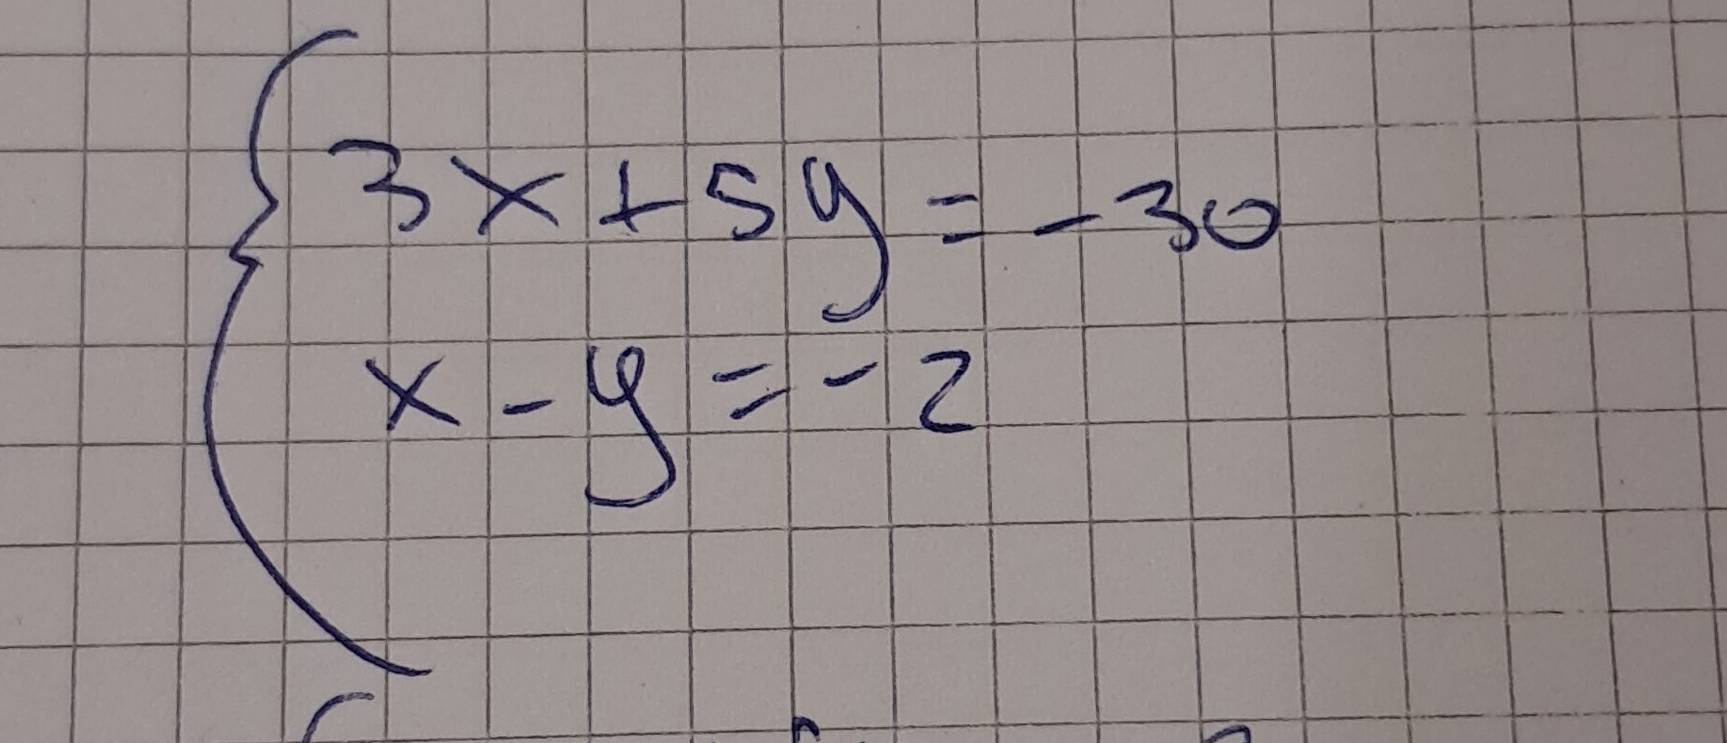 3x+5y=-30
x-y=-2